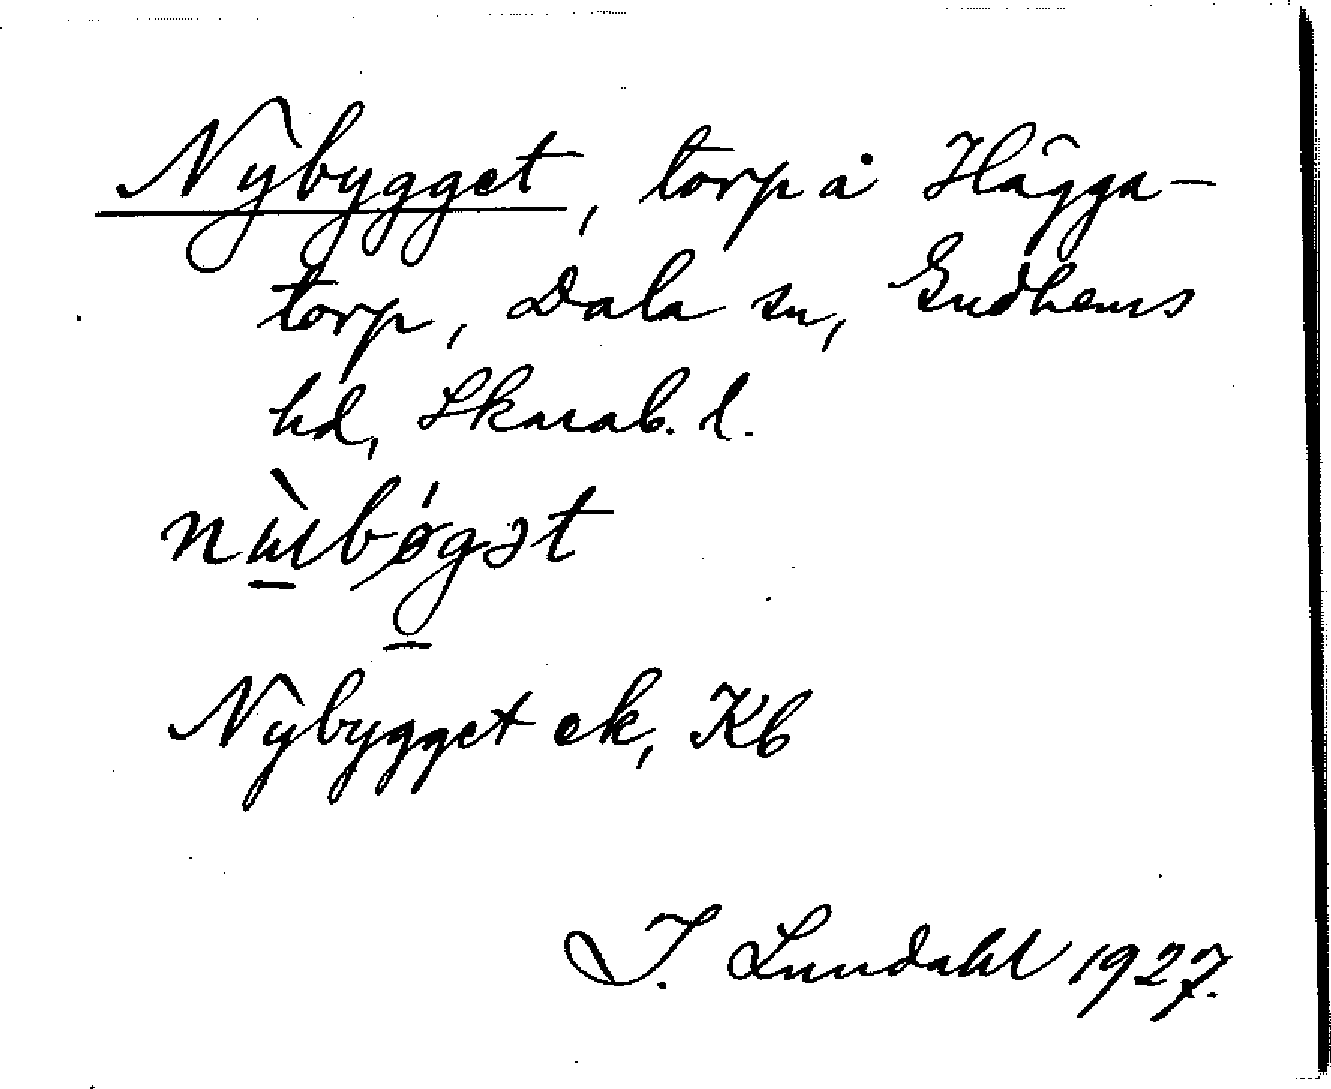 Nybygget, torp å Hägga-
torp, Dala sn, Gudhems
hd, Skarab. l.
Nybygget ek, Kb
I. Lundahl 1927.